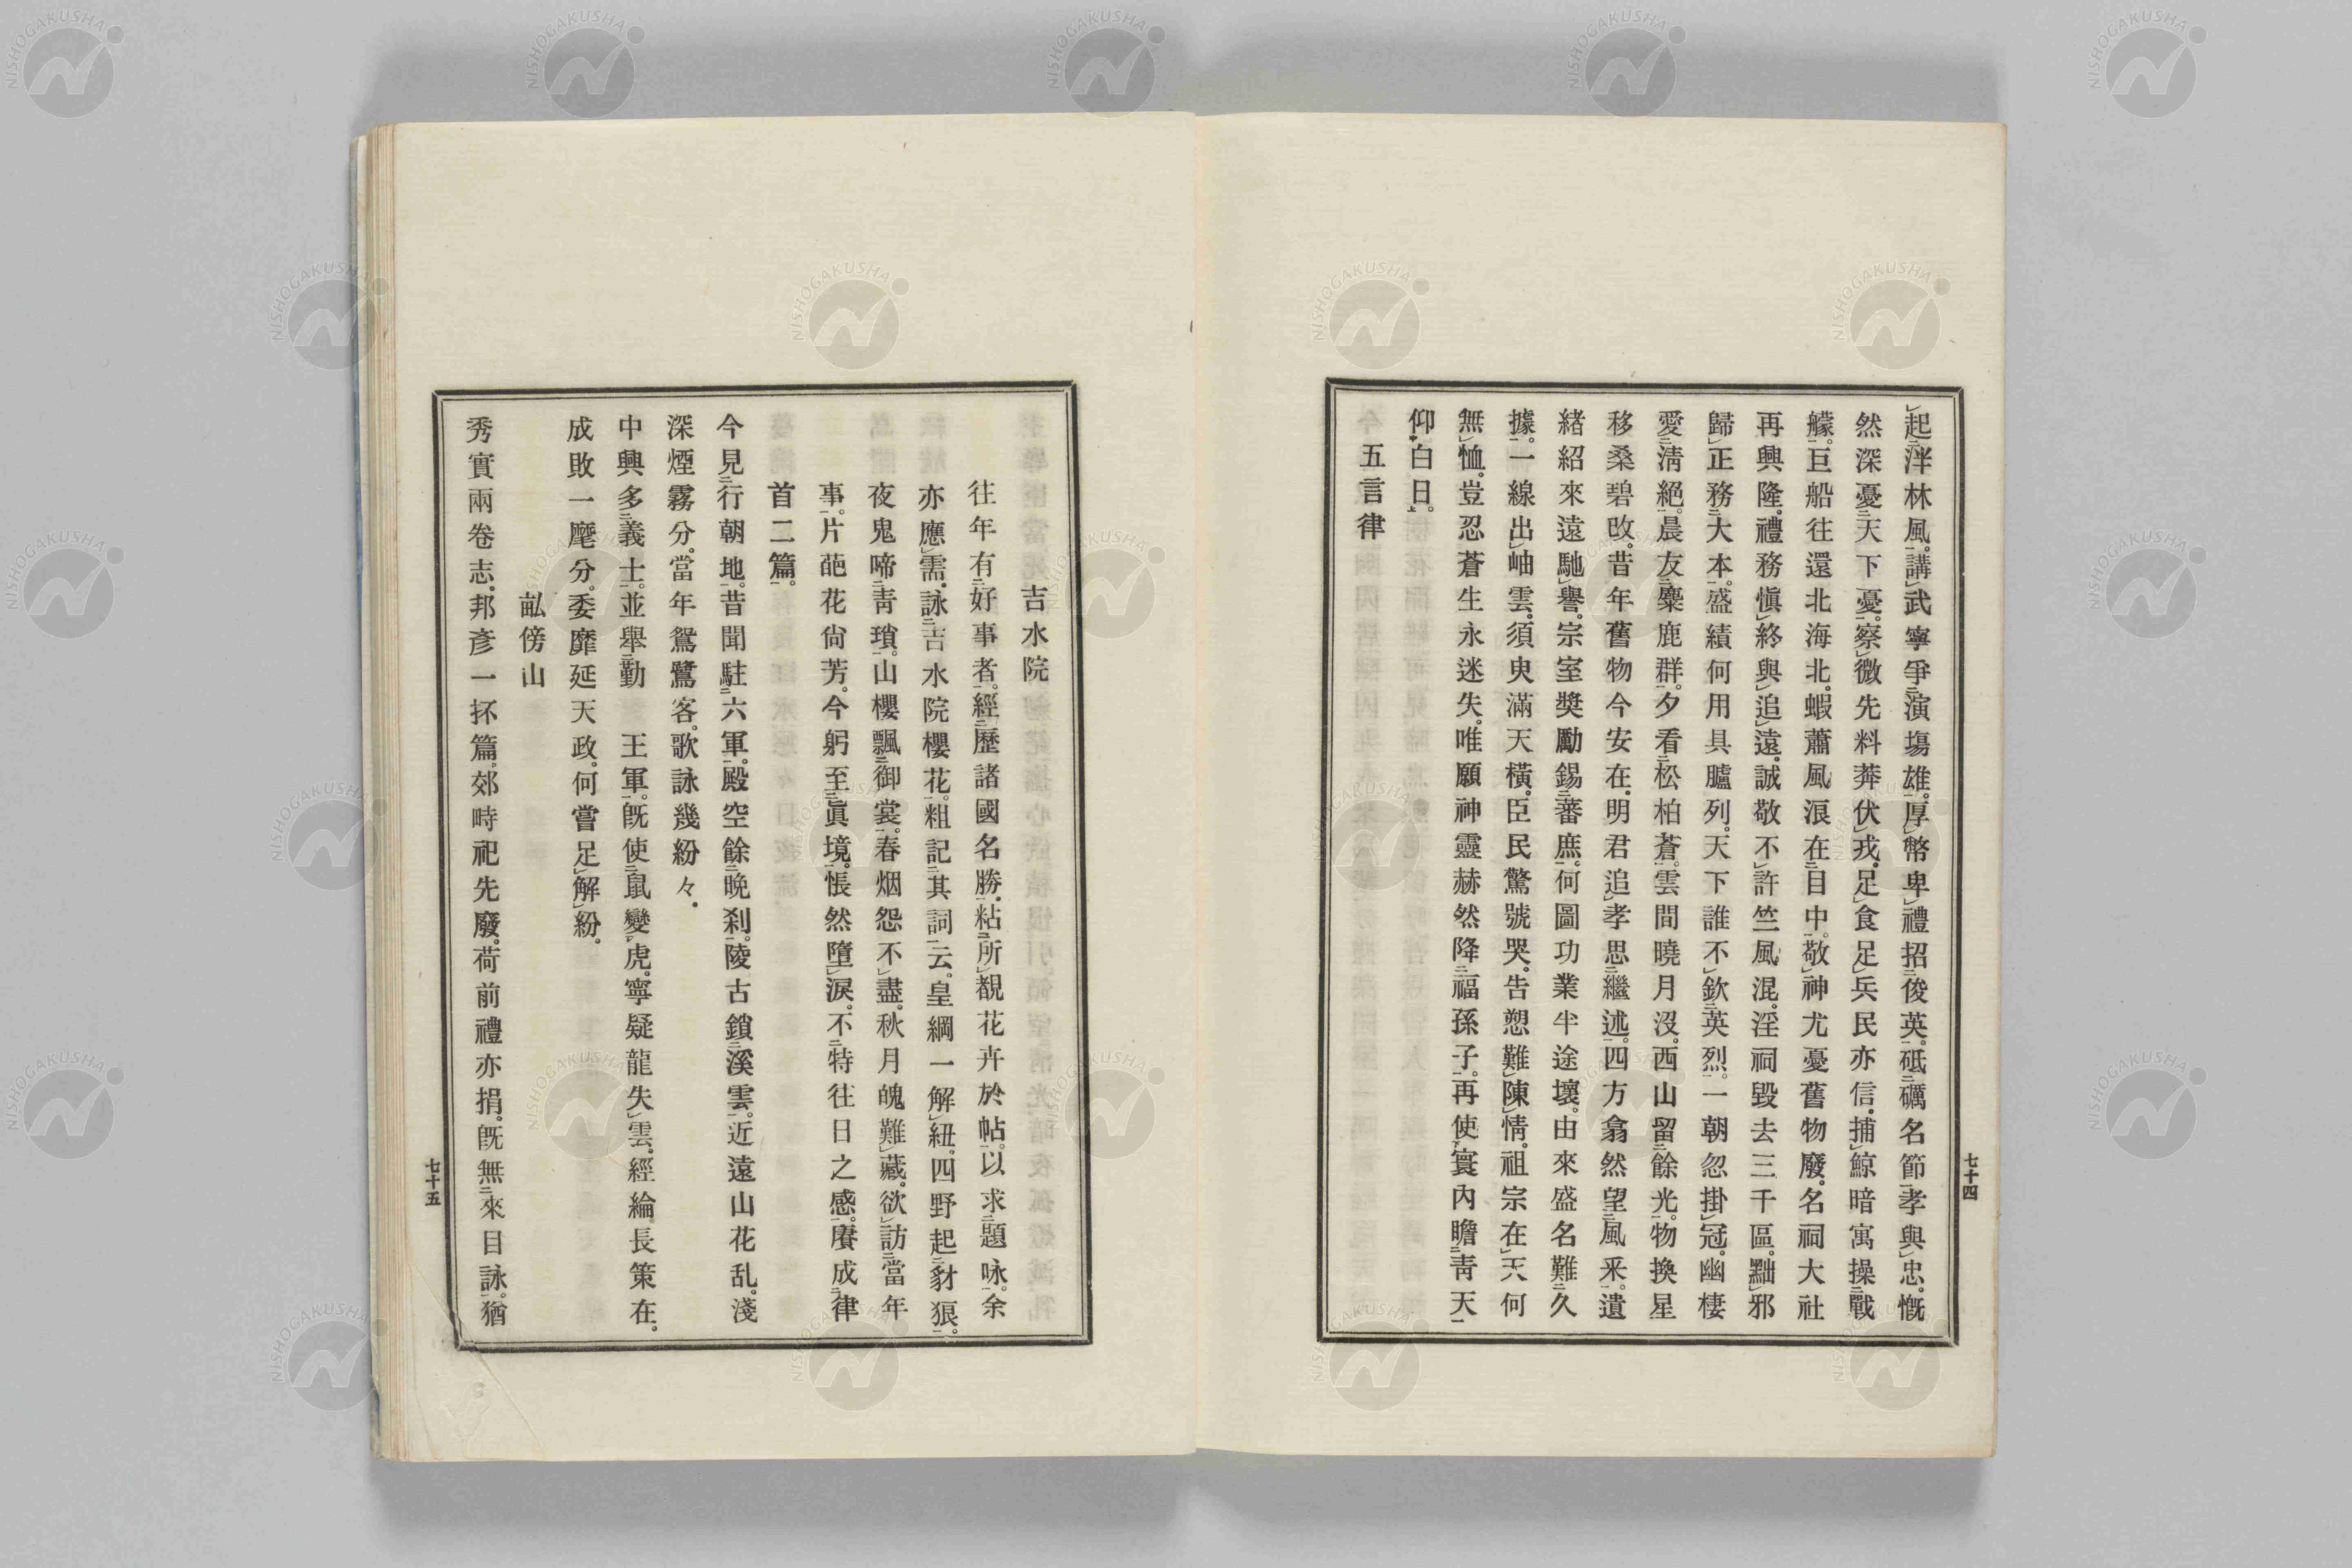 起泮林風。講武寧爭演塲雄。厚幣卑禮招俊英。砥礪名節孝與忠。慨
然深憂天下憂。察微先料莽伏戎。足食足兵民亦信。捕鯨暗寓操戰
艨。巨船往還北海北。蝦蕭風浪在目中。敬神尤憂舊物廢。名祠大社
再興隆。禮務愼終與追遠。誠敬不許竺風混。淫祠毀去三千區。黜邪
歸正務大本。盛績何用具臚列。天下誰不欽英烈。一朝忽掛冠。幽棲
愛淸絕。晨友麋鹿群。夕看松柏蒼。雲間曉月沒。西山留餘光。物換星
移桑碧改。昔年舊物今安在。明君追孝思繼述。四方翕然望風釆。遺
緖紹來遠馳譽。宗室奬勵錫蕃庶。何圖功業半途壞。由來盛名難久
據。一線出岫雲。須臾滿天橫。臣民驚號哭。告愬難陳情。祖宗在天何
無恤。豈忍蒼生永迷失。唯願神靈赫然降福孫子。再使寰內瞻靑天
仰白日。
五言律
七十四
吉水院
往年有好事者。經歷諸國名勝。粘所覩花卉於帖。以求題咏。余
亦應需。詠吉水院櫻花。粗記其詞云。皇綱一解紐。四野起豺狼。
夜鬼啼靑瑣。山櫻飄御裳。春烟怨不盡。秋月魄難藏。欲訪當年
事。片葩花尙芳。今躬至眞境。悵然墮淚。不特往日之感。賡成律
首二篇。
今見行朝地。昔聞駐六軍。殿空餘晩刹。陵古鎖溪雲。近遠山花乱。淺
深煙霧分。當年鴛鷺客。歌詠幾紛々。
中興多義士。並舉勤　王軍。旣使鼠變虎。寧疑龍失雲。經綸長策在。
成敗一麾分。委靡延天政。何嘗足解紛。
畝傍山
秀實兩卷志。邦彥一抔篇。郊時祀先廢。荷前禮亦捐。旣無來目詠。猶
七十五
NISHOGAKUSHA